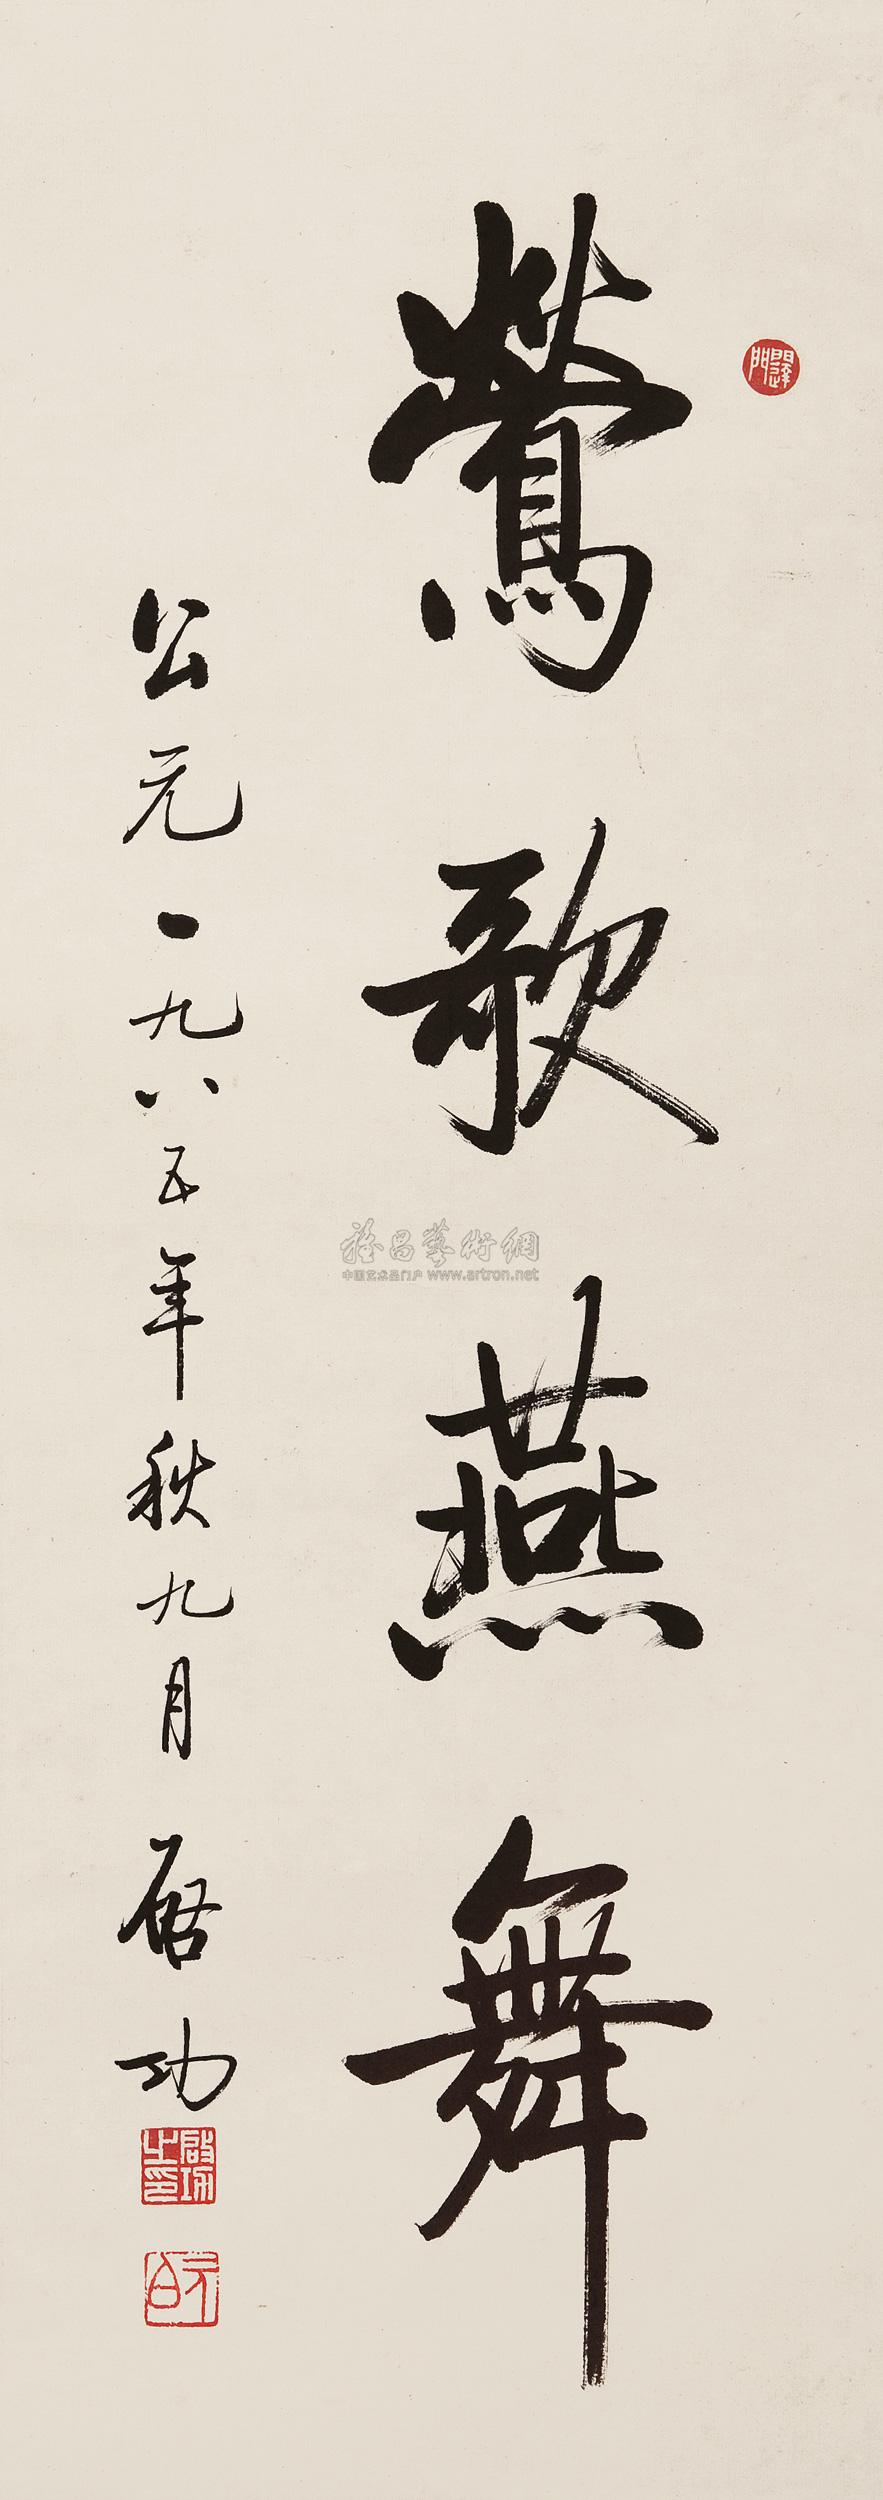 鶯歌燕舞
公元一九八五年秋九月 启功
啟功之印
元白
雅昌藝術網
中国艺术品门户 www.artron.net